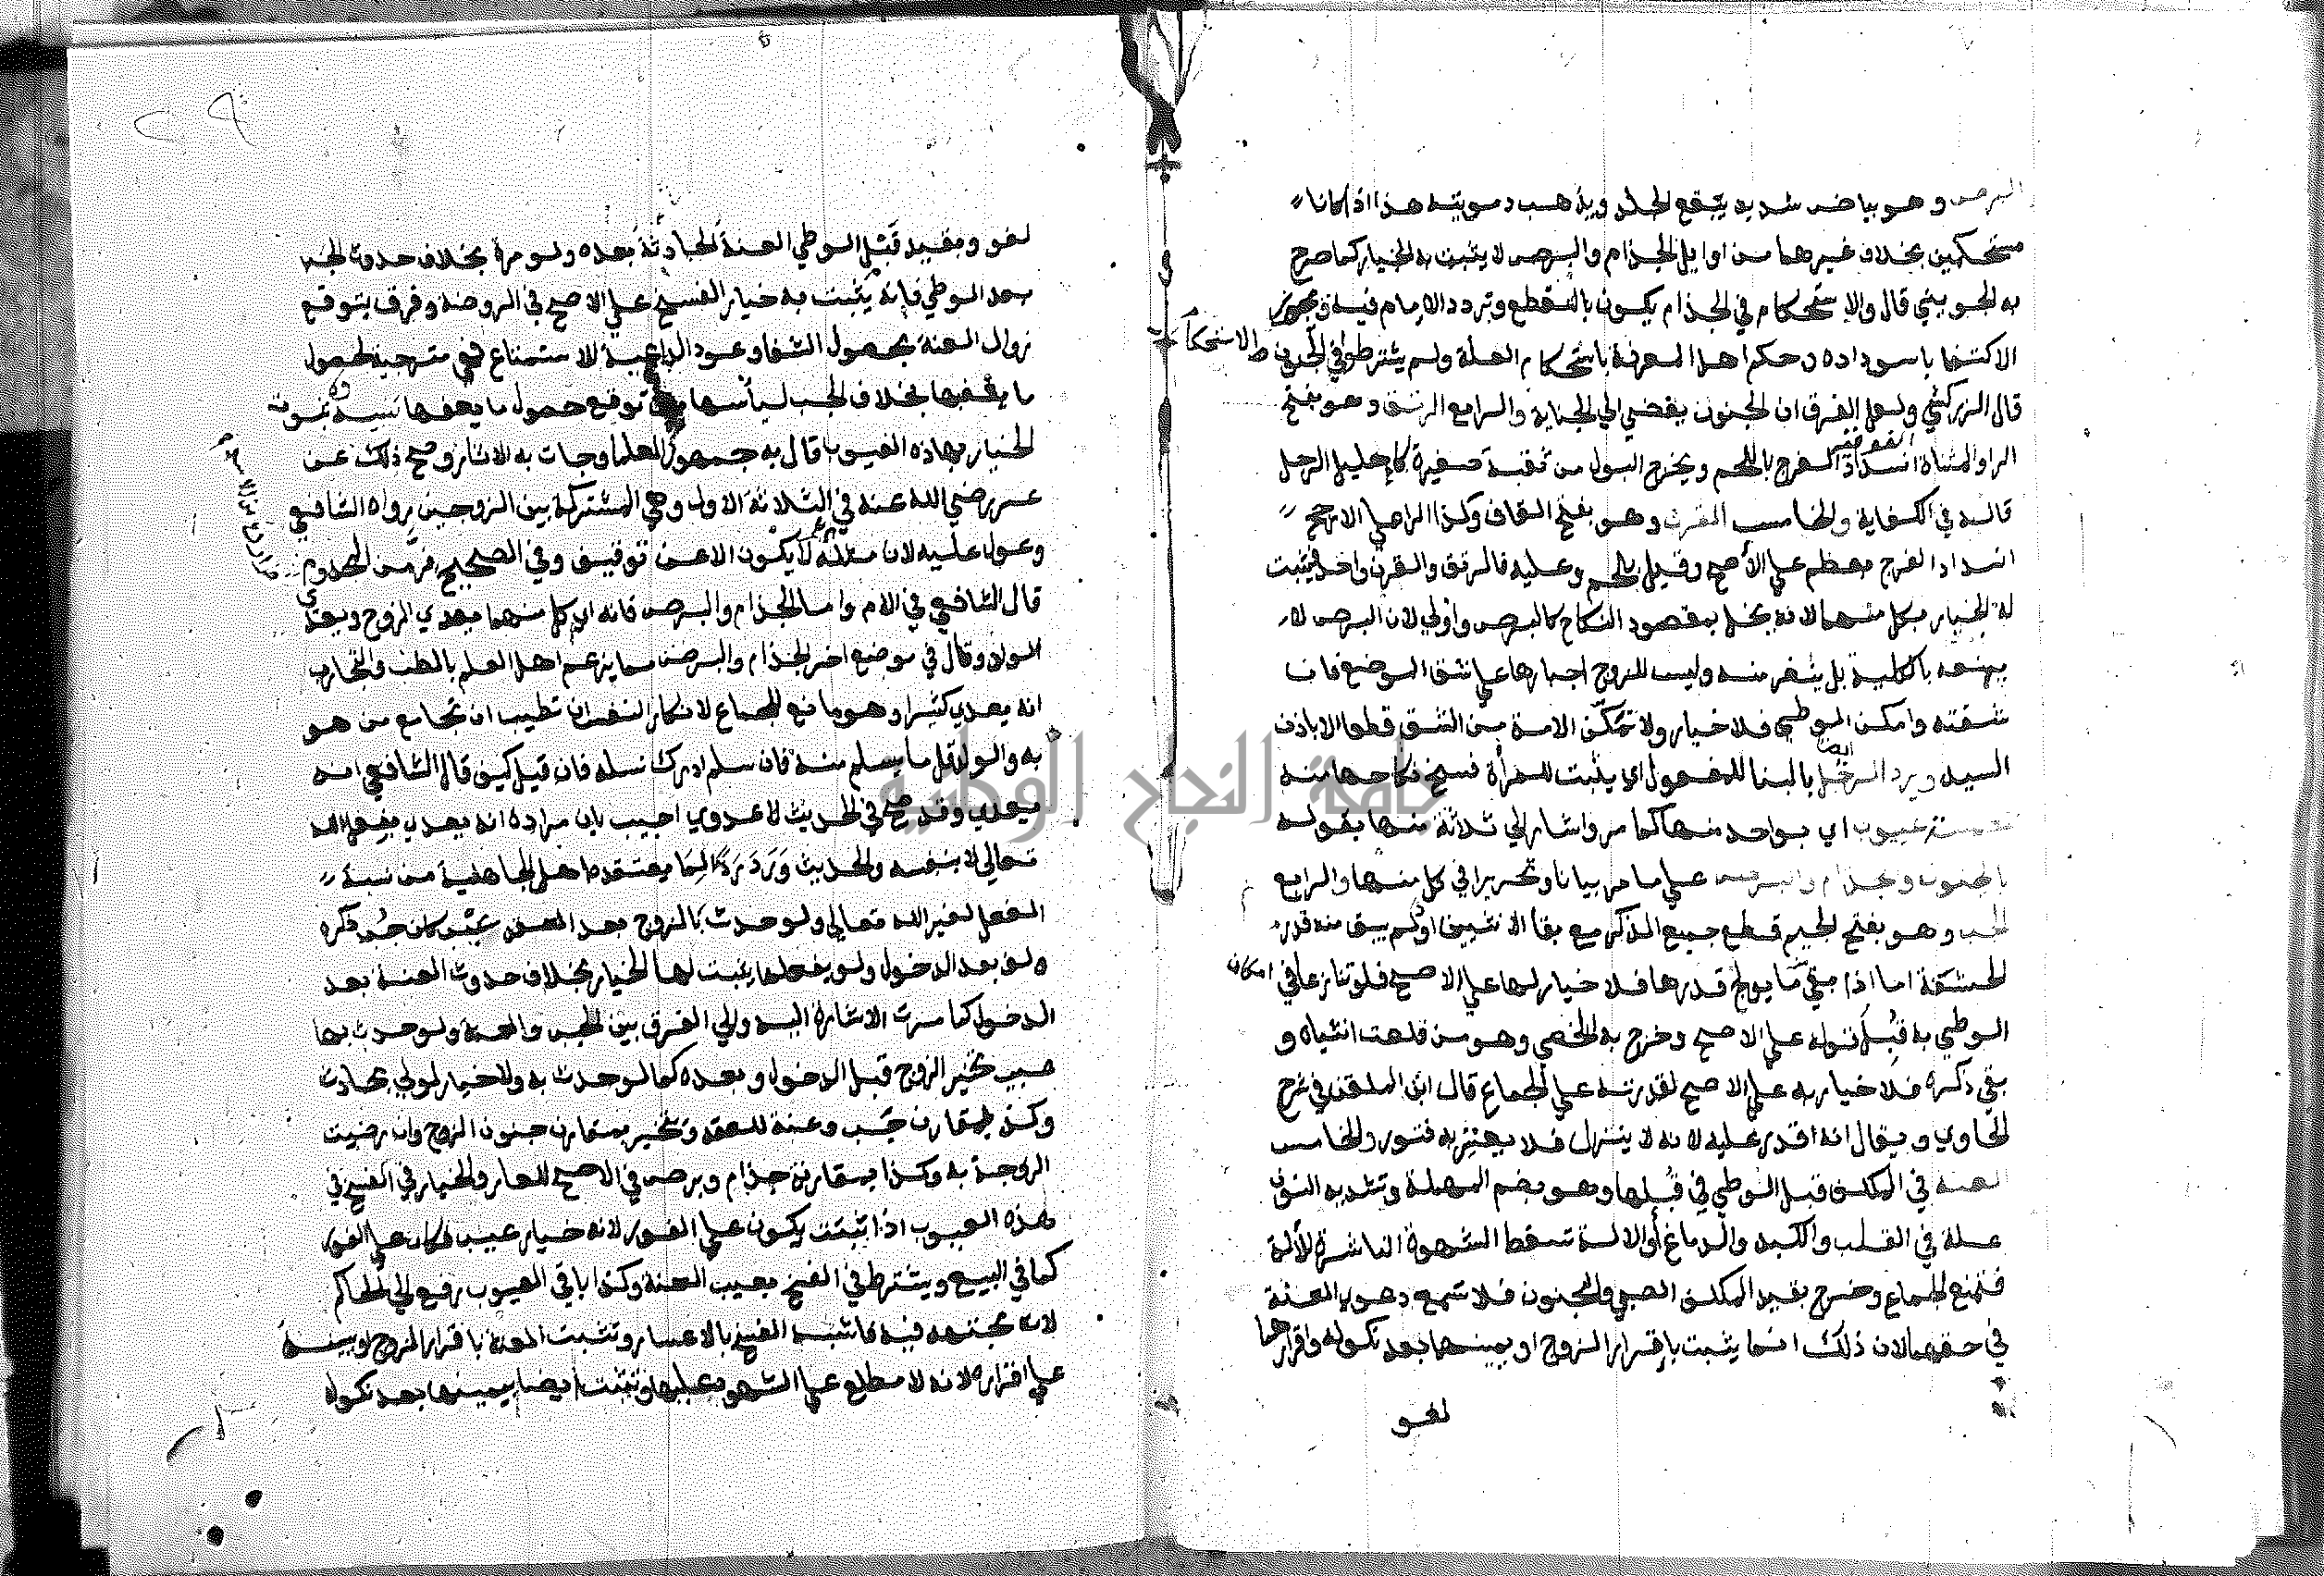 البرص وهو بياض شديد يبقع الجلد ويذهب دمويته هذا اذا كانا
مستحكمين بخلاف غيرهما من اوايل الجذام والبرص لا يثبت به الخيار كما صرح
به الجويني قال والاستحكام في الجذام يكون بالتقطع وتردد الامام فيه وجوز
الاكتفا باسوداده وحكم اهل المعرفة باستحكام العلة ولم يشترطوا في الجنون الاستحكام
قال الزركشي ولعل الفرق ان الجنون يفضي الي الجناية والرابع الرتق وهو بفتح
الرا والمثناة الفوقية انسداد الفرج باللحم ويخرج البول من ثقبة صغيرة كاحليل الرجل
قاله في الكفاية والخامس القرن وهو بفتح القاف وكذا الرا علي الارجح
انسداد الفرج بعظم علي الأصح وقيل بلحم وعليه فالرتق والقرن واحد فيثبت
له الخيار بكل منهما لانه يخل بمقصود النكاح كالبرص واولي لان البرص لا
يمنعه بالكلية بل ينفر منه وليس للزوج اجبارها علي شق الموضع فان
شقته وامكن الوطي فلا خيار ولا تمكن الامة من الشق قطعا الا باذن
السيد ويرد الرجل ايضا بالبنا للمفعول اي يثبت للمرأة فسخ نكاحها منه
بخمسة عيوب اي بواحد منها كما مر واشار الي ثلاثة منها بقوله
بالجنون وبجذام والبرص علي ما مر بيانا وتحريرا في كل منها والرابع
الجب وهو بفتح الجيم قطع جميع الذكر مع بقا الانثيين او لم يبق منه قدر
الحشفة اما اذا بقي ما يولج قدرها فلا خيار لها علي الاصح فلو تنازعا في امكان
الوطي به قبل قوله علي الاصح وخرج به الخصي وهو من قلعت انثياه و
بقي ذكره فلا خيار به علي الاصح لقدرته علي الجماع قال ابن الملقن في شرح
الحاوي ويقال انه اقدر عليه لانه لا ينزل فلا يعتريه فتور والخامس
العنة في المكلف قبل الوطي في قبلها وهو بضم المهملة وتشديد النون
علة في القلب والكبد والدماغ أو الالة تسقط الشهوة الناشرة للألة
فتمنع الجماع وخرج بقيد المكلف الصبي والمجنون فلا تسمع دعوي العنة
في حقهما لان ذلك انما يثبت باقرار الزوج او بيمينها بعد نكوله واقرارهما
لغو
لغو وبقيد قبل الوطي العنة الحادثة بعده ولو مرة بخلاف حدوث الجب
بعد الوطي فانه يثبت به خيار الفسخ علي الاصح في الروضة وفرق بتوقع
زوال العنة بحصول الشفا وعود الداعية للاستمتاع فهي مترجية لحصول
ما يعفها بخلاف الجب ليأسها من توقع حصول ما يعفها تنبيه ثبوت
الخيار بهذه العيوب قال به جمهور العلما وجات به الاثار وصح ذلك عن
عمر رضي الله عنه في الثلاثة الاول وهي المشتركة بين الزوجين رواه الشافعي
وعول عليه لان مثله لا يكون الا عن توقيف وفي الصحيح فر من المجذوم
قال الشافعي في الام واما الجذام والبرص فانه اي كل منهما يعدي الزوج ويعدي
الولد وقال في موضع اخر الجذام والبرص مما يزعم اهل العلم بالطب والتجارب
انه يعدي كثيرا وهو مانع للجماع لا تكاد النفس ان تطيب ان تجامع من هو
به والولد قل ما يسلم منه فان سلم ادرك نسله فان قيل كيف قال الشافعي انه
يعدي وقد صح في الحديث لا عدوي اجيب بان مراده انه يعدي بفعل الله
تعالي لا بنفسه والحديث ورد ردا لما يعتقده اهل الجاهلية من نسبة
الفعل لغير الله تعالي ولو حدث بالزوج بعد العقد عيب كان جب ذكره
ولو بعد الدخول ولو بفعلها يثبت لها الخيار بخلاف حدوث العنة بعد
الدخول كما مرت الاشارة اليه والي الفرق بين الجب والعنة ولو حدث بها
عيب تخير الزوج قبل الدخول وبعده كما لو حدث به ولا خيار لولي بحادث
وكذا بمقارن جب وعنة للعقد ويتخير بمقارن جنون الزوج وان رضيت
الزوجة به وكذا بمقارنة جذام وبرص في الاصح للعار والخيار في الفسخ في
هذه العيوب اذا ثبتت يكون علي الفور لانه خيار عيب فكان علي الفور
كما في البيع ويشترط في الفسخ بعيب العنة وكذا باقي العيوب رفع الي الحاكم
لانه مجتهد فيه فاشبه الفسخ بالاعسار وتثبت العنة باقرار الزوج او ببينة
علي اقراره لانه لا مطلع علي الشهود عليها وتثبت ايضا بيمينها بعد نكوله
جامعة النجاح الوطنية